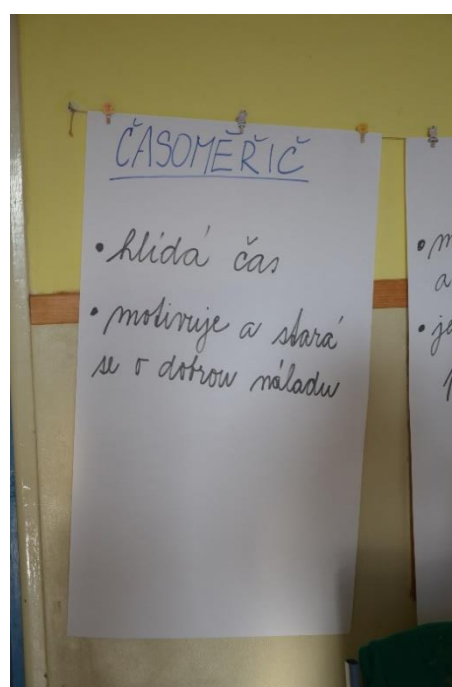 ČASOMĚŘIČ
• hlídá čas
• motivuje a stará
se o dobrou náladu
• m
a
• je